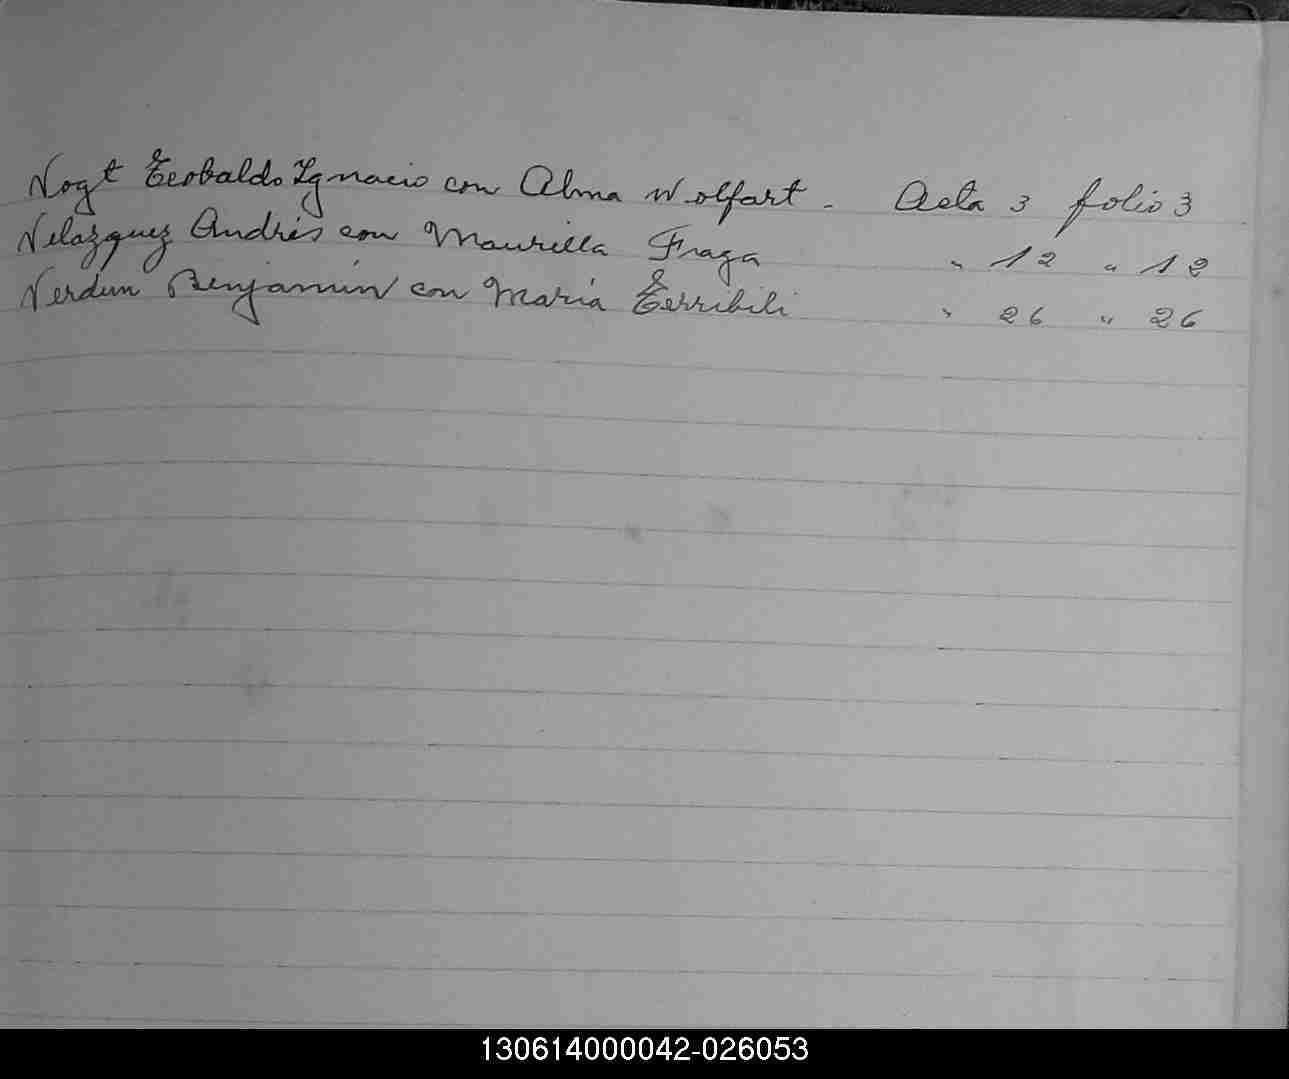 Vogt Teobaldo Ygnacio con Alma Wolfart - Acta 3 folio 3
Velazquez Andrés con Maurilla Fraga " 12 " 12
Verdun Benjamin con María Terribili " 26 " 26
130614000042-026053